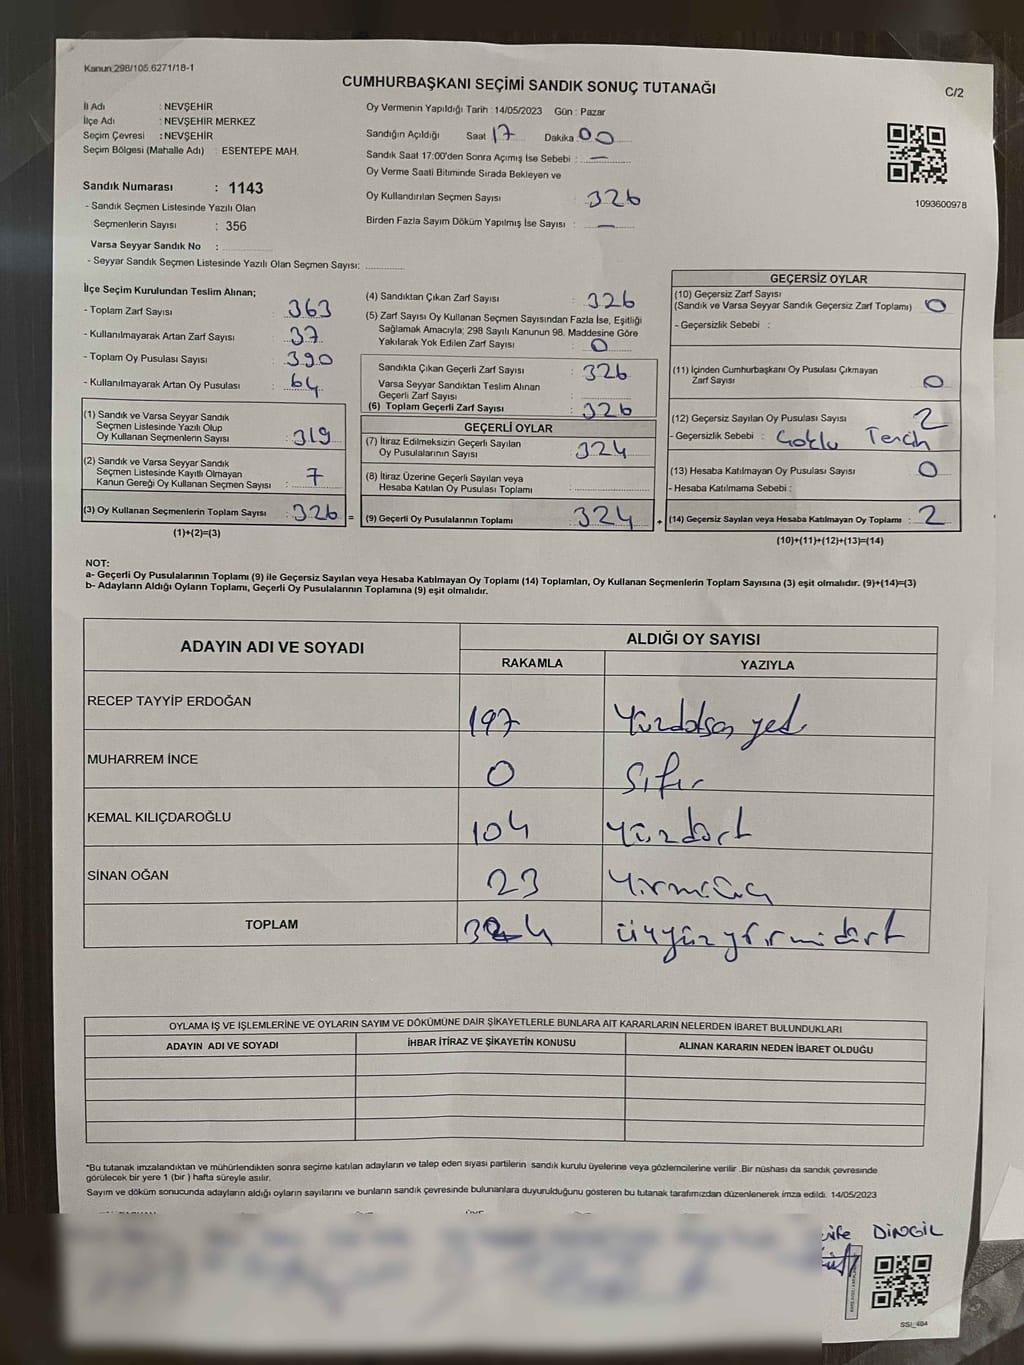 Kanun 298/105.6271/18-1
CUMHURBAŞKANI SEÇİMİ SANDIK SONUÇ TUTANAĞI
C/2
İl Adı : NEVŞEHİR
İlçe Adı : NEVŞEHİR MERKEZ
Seçim Çevresi : NEVŞEHİR
Seçim Bölgesi (Mahalle Adı) : ESENTEPE MAH.
Sandık Numarası : 1143
- Sandık Seçmen Listesinde Yazılı Olan
Seçmenlerin Sayısı : 356
Varsa Seyyar Sandık No :
- Seyyar Sandık Seçmen Listesinde Yazılı Olan Seçmen Sayısı:
Oy Vermenin Yapıldığı Tarih : 14/05/2023 Gün : Pazar
Sandığın Açıldığı Saat 17 Dakika 00
Sandık Saat 17:00'den Sonra Açımış İse Sebebi : —
Oy Verme Saati Bitiminde Sırada Bekleyen ve
Oy Kullandırılan Seçmen Sayısı : 326
Birden Fazla Sayım Döküm Yapılmış İse Sayısı : —
1093600978
İlçe Seçim Kurulundan Teslim Alınan;
- Toplam Zarf Sayısı : 363
- Kullanılmayarak Artan Zarf Sayısı : 37
- Toplam Oy Pusulası Sayısı : 390
- Kullanılmayarak Artan Oy Pusulası : 64
(1) Sandık ve Varsa Seyyar Sandık
Seçmen Listesinde Yazılı Olup
Oy Kullanan Seçmenlerin Sayısı : 319
(2) Sandık ve Varsa Seyyar Sandık
Seçmen Listesinde Kayıtlı Olmayan
Kanun Gereği Oy Kullanan Seçmen Sayısı : 7
(3) Oy Kullanan Seçmenlerin Toplam Sayısı : 326 =
(1)+(2)=(3)
(4) Sandıktan Çıkan Zarf Sayısı : 326
(5) Zarf Sayısı Oy Kullanan Seçmen Sayısından Fazla İse, Eşitliği
Sağlamak Amacıyla; 298 Sayılı Kanunun 98. Maddesine Göre
Yakılarak Yok Edilen Zarf Sayısı : 0
Sandıkta Çıkan Geçerli Zarf Sayısı : 326
Varsa Seyyar Sandıktan Teslim Alınan
Geçerli Zarf Sayısı :
(6) Toplam Geçerli Zarf Sayısı : 326
GEÇERLİ OYLAR
(7) İtiraz Edilmeksizin Geçerli Sayılan
Oy Pusulalarının Sayısı : 324
(8) İtiraz Üzerine Geçerli Sayılan veya
Hesaba Katılan Oy Pusulası Toplamı :
(9) Geçerli Oy Pusulalarının Toplamı : 324 +
GEÇERSİZ OYLAR
(10) Geçersiz Zarf Sayısı
(Sandık ve Varsa Seyyar Sandık Geçersiz Zarf Toplamı) : 0
- Geçersizlik Sebebi :
(11) İçinden Cumhurbaşkanı Oy Pusulası Çıkmayan
Zarf Sayısı : 0
(12) Geçersiz Sayılan Oy Pusulası Sayısı : 2
- Geçersizlik Sebebi : Çoklu Tercih
(13) Hesaba Katılmayan Oy Pusulası Sayısı : 0
- Hesaba Katılmama Sebebi :
(14) Geçersiz Sayılan veya Hesaba Katılmayan Oy Toplamı : 2
(10)+(11)+(12)+(13)=(14)
NOT:
a- Geçerli Oy Pusulalarının Toplamı (9) ile Geçersiz Sayılan veya Hesaba Katılmayan Oy Toplamı (14) Toplamları, Oy Kullanan Seçmenlerin Toplam Sayısına (3) eşit olmalıdır. (9)+(14)=(3)
b- Adayların Aldığı Oyların Toplamı, Geçerli Oy Pusulalarının Toplamına (9) eşit olmalıdır.
ADAYIN ADI VE SOYADI ALDIĞI OY SAYISI
RAKAMLA YAZIYLA
RECEP TAYYİP ERDOĞAN 197 yedi
MUHARREM İNCE 0 Sıfır
KEMAL KILIÇDAROĞLU 104 Yüzdört
SİNAN OĞAN 23 Yirmiüç
TOPLAM 324 üçyüzyirmidört
OYLAMA İŞ VE İŞLEMLERİNE VE OYLARIN SAYIM VE DÖKÜMÜNE DAİR ŞİKAYETLERLE BUNLARA AİT KARARLARIN NELERDEN İBARET BULUNDUKLARI
ADAYIN ADI VE SOYADI İHBAR İTİRAZ VE ŞİKAYETİN KONUSU ALINAN KARARIN NEDEN İBARET OLDUĞU
*Bu tutanak imzalandıktan ve mühürlendikten sonra seçime katılan adayların ve talep eden siyasi partilerin sandık kurulu üyelerine veya gözlemcilerine verilir .Bir nüshası da sandık çevresinde
görülecek bir yere 1 (bir ) hafta süreyle asılır.
Sayım ve döküm sonucunda adayların aldığı oyların sayılarını ve bunların sandık çevresinde bulunanlara duyurulduğunu gösteren bu tutanak tarafımızdan düzenlenerek imza edildi. 14/05/2023
DİNGİL
SSI_404